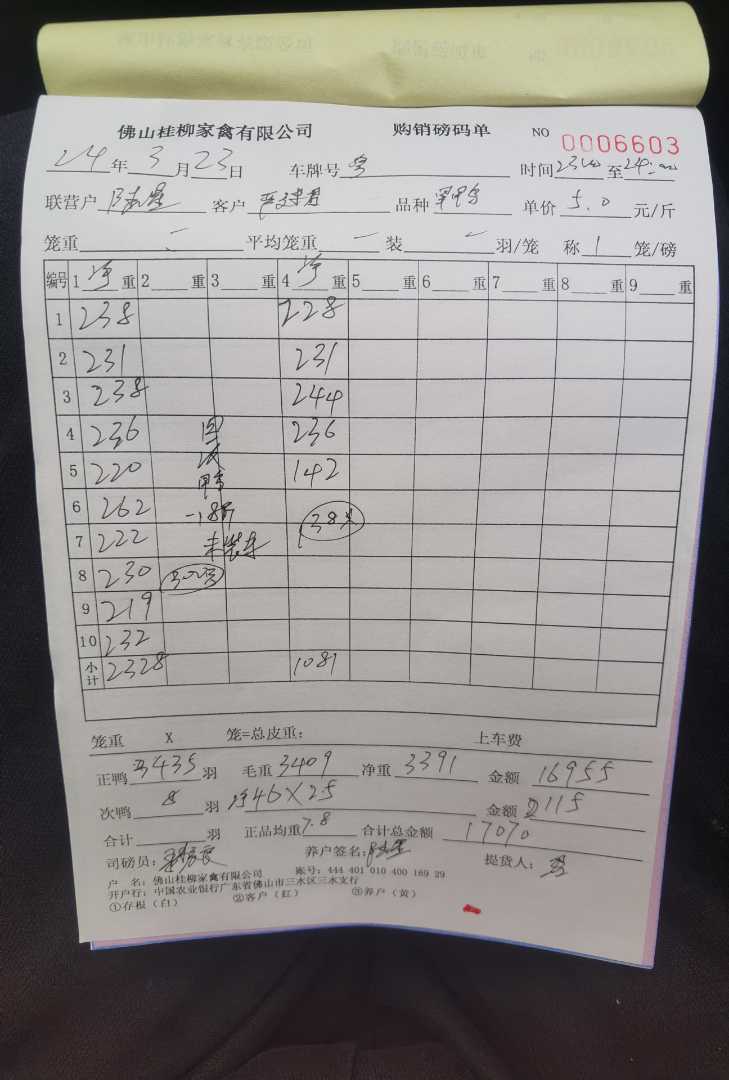 佛山桂柳家禽有限公司 购销磅码单 NO 0006603
24年3月23日 车牌号 时间 至
联营户 客户 品种 单价 5.0 元/斤
笼重 平均笼重 装 羽/笼 称 1 笼/磅
编号 1 净 重 2 重 3 重 4 净 重 5 重 6 重 7 重 8 重 9 重
1 238 228
2 231 231
3 238 244
4 236 236
5 220 142
6 262
7 222 未装车
8 230
9 219
10 232
小计 2328 1081
笼重 X 笼=总皮重: 上车费
正鸭 435 羽 毛重 3409 净重 3391 金额 16955
次鸭 8 羽 净46×25 金额 115
合计 羽 正品均重 7.8 合计总金额 17070
司磅员: 养户签名: 提货人:
户 名: 佛山桂柳家禽有限公司 账号: 444 401 010 400 169 29
开户行: 中国农业银行广东省佛山市三水区三水支行
①存根(白) ②客户(红) ③养户(黄)